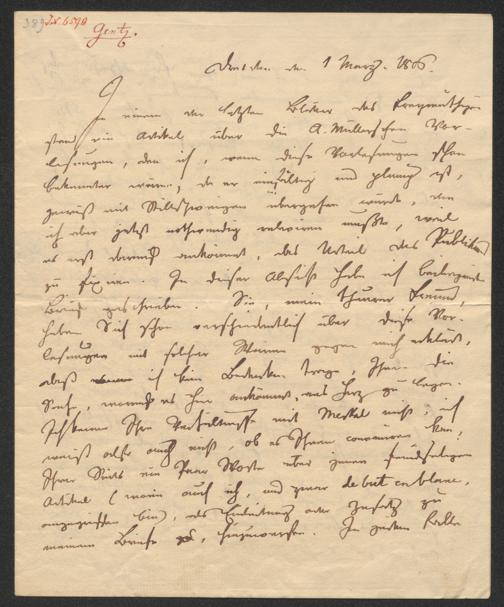 389 Inv 6590
Gentz.
Dresden den 1 März. 1806.
In einem der letzten Blätter des Freymüthigen
stand ein Artikel über die A. Müllerschen Vor-
lesungen, den ich, wenn diese Vorlesungen schon
bekannter wären, da er einfältig und plump ist,
gewiß mit Stillschweigen übergehen würde, den
ich aber jetzt nothwendig releviren mußte, weil
es erst darauf ankommt, das Urteil des Publikums
zu fixiren. In dieser Absicht habe ich beiliegenden
Brief geschrieben. Sie, mein theurer Freund,
haben Sich schon verschiedentlich über diese Vor-
lesungen mit solcher Wärme gegen mich erklärt,
daß ich kein Bedenken trage, Ihnen die
Sache, worauf es hier ankommt, ans Herz zu legen.
Ich kenne Ihre Verhältnisse mit Merkel nicht; ich
weiß also auch nicht, ob es Ihnen conveniren kan,
Ihrer Seits ein Paar Worte über jenen feindseligen
Artikel (worin auch ich, und zwar de but en blanc,
angegriffen bin), als Einleitung oder Zusatz zu
meinem Briefe hinzuwerfen. In jedem Falle